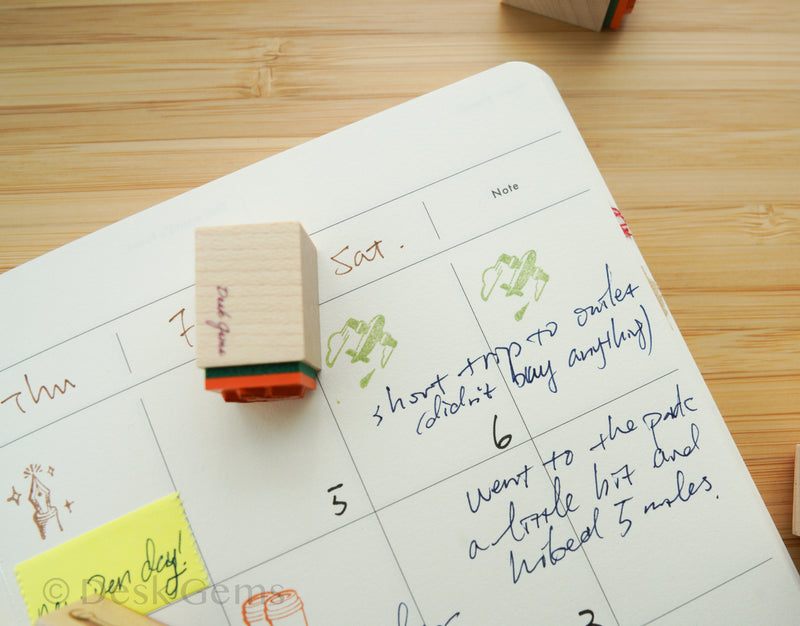 Note
Sat.
Desk Gems
Thu
short trip to outlet
(didn't buy anything)
6
went to the park
a little bit and
hiked 5 miles.
5
new pen day!
© Desk Gems
3